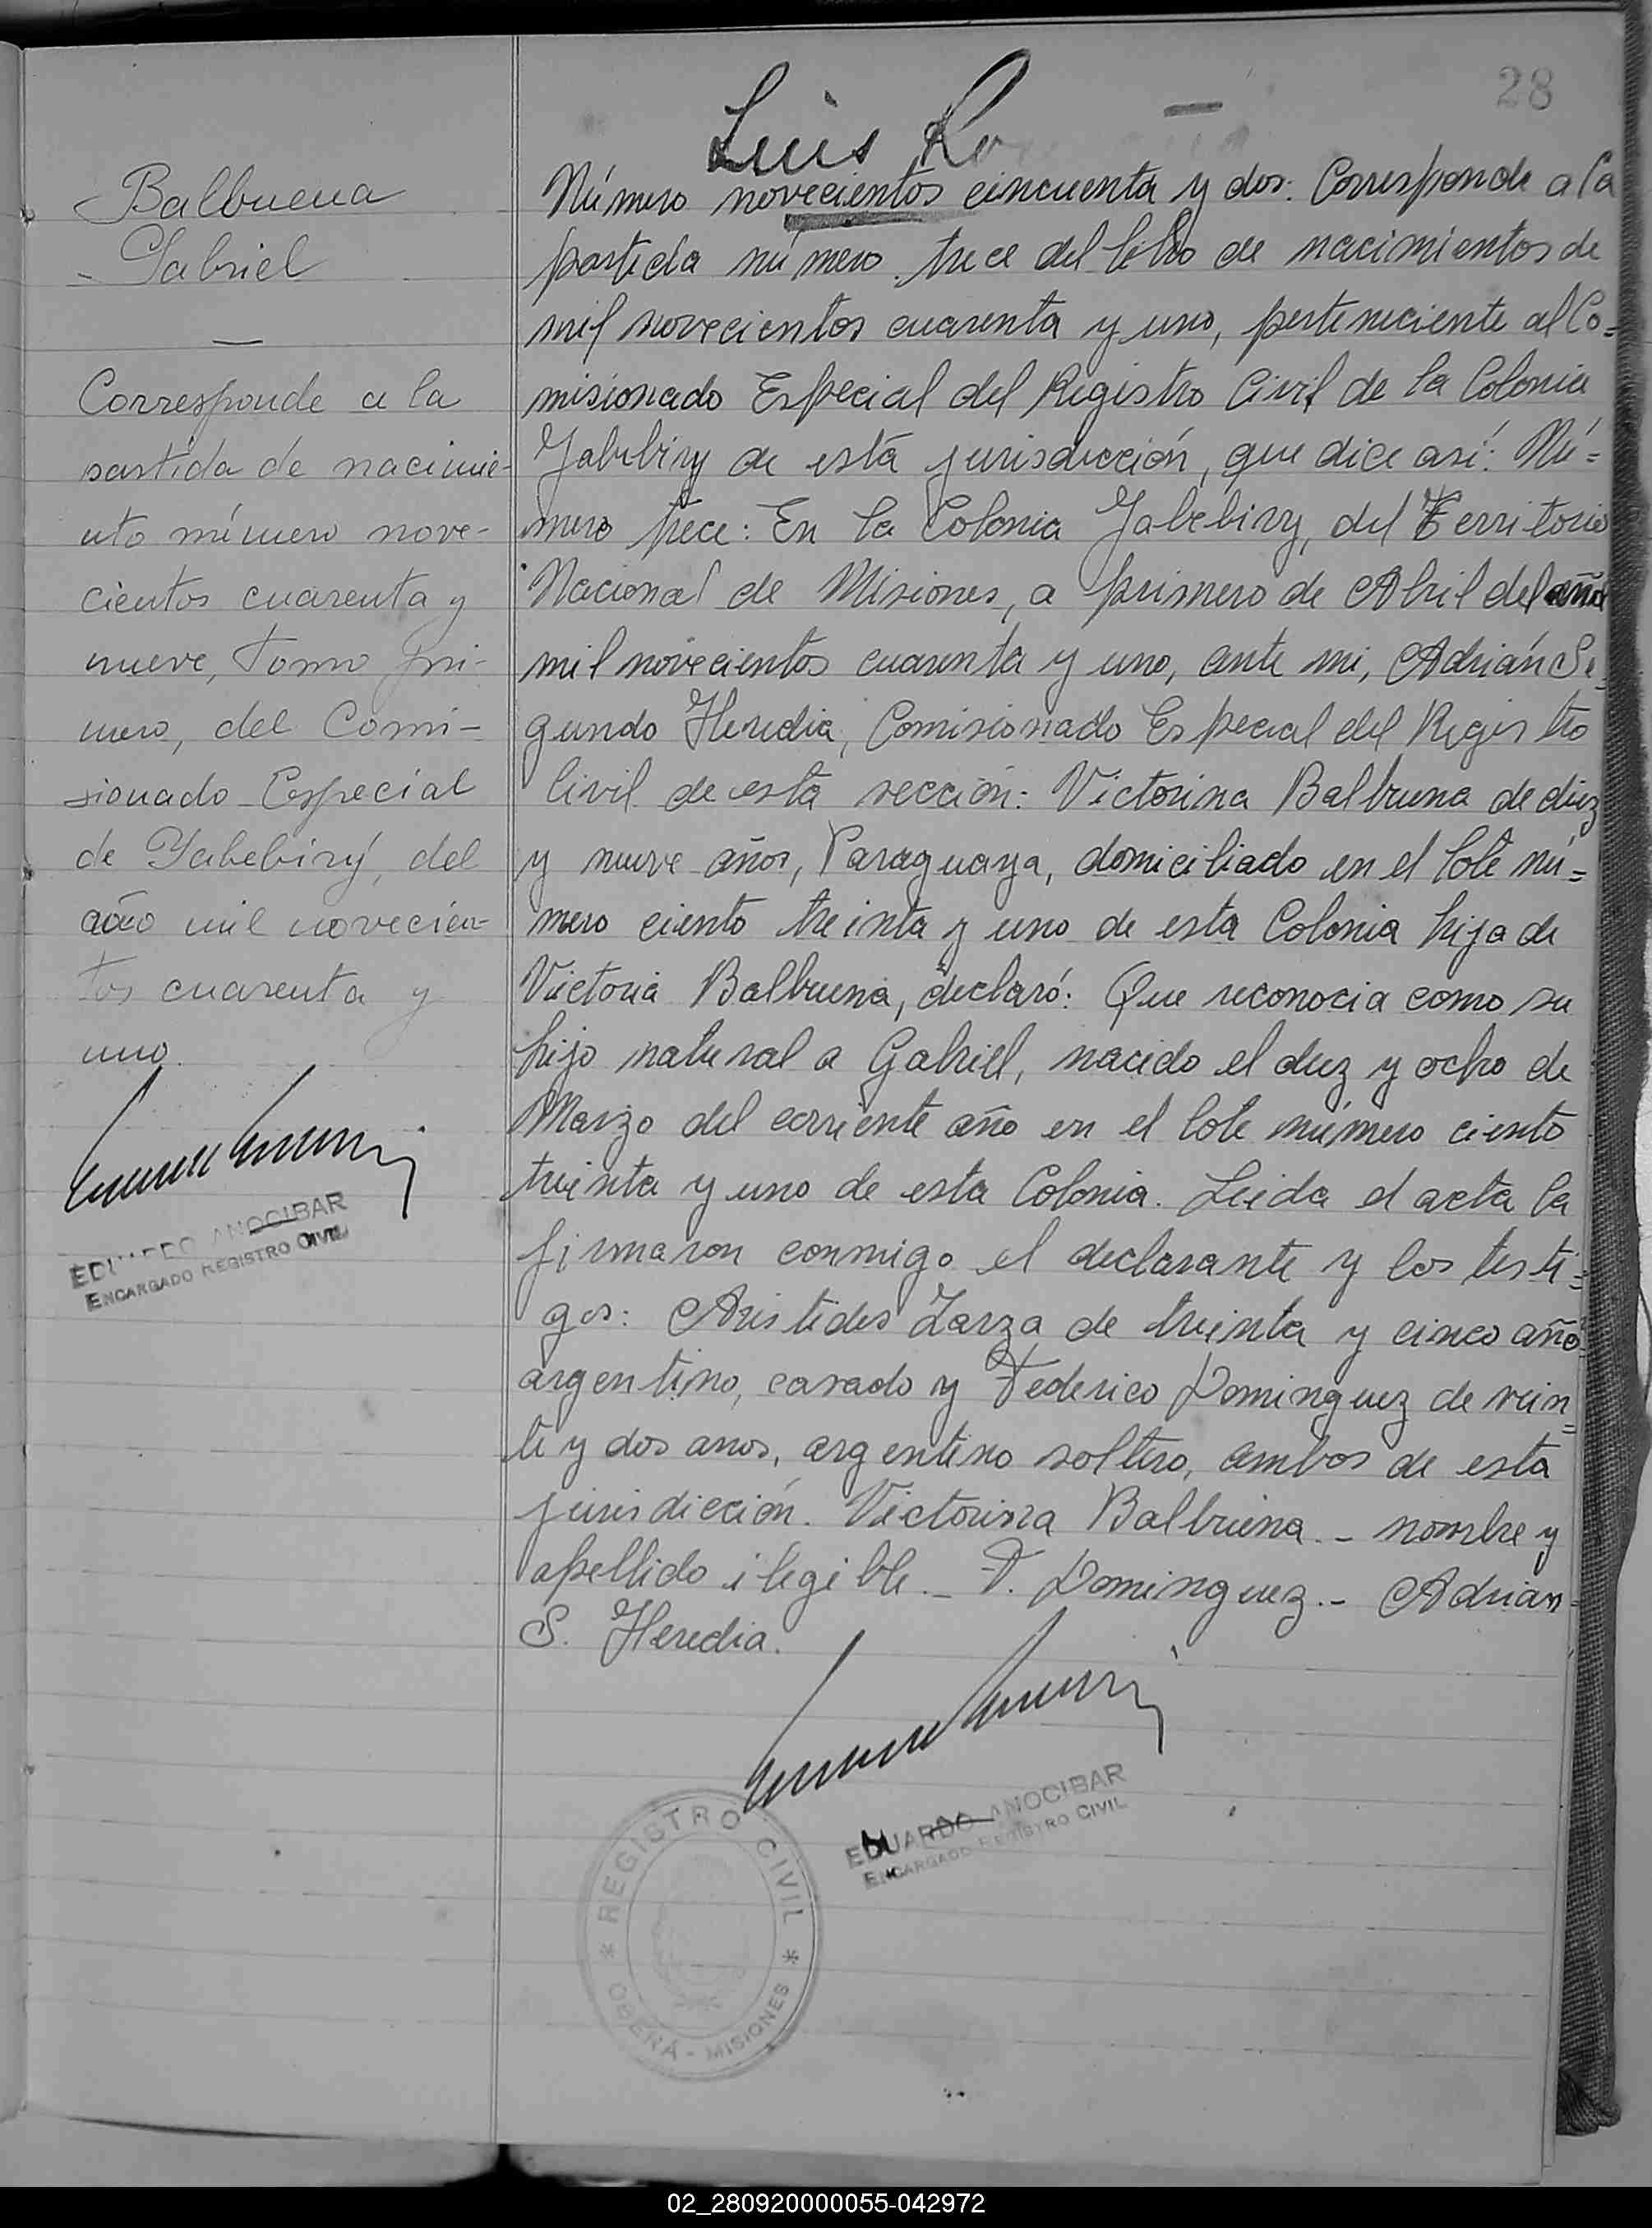 28
Luis Ro
Balbuena
Gabriel
Corresponde a la
partida de nacimie-
nto número nove-
cientos cuarenta y
nueve, Tomo pri-
mero, del Comi-
sionado Especial
de Yabebirý, del
año mil novecien-
tos cuarenta y
uno.
EDUARDO ANOCIBAR
ENCARGADO REGISTRO CIVIL
Número novecientos cincuenta y dos: Corresponde a la
partida número trece del libro de nacimientos de
mil novecientos cuarenta y uno, perteneciente al Co=
misionado Especial del Registro Civil de la Colonia
Yabebiry de está jurisdicción, que dice así: Nú=
mero trece: En la Colonia Yabebiry, del Territorio
Nacional de Misiones, a primero de Abril del año
mil novecientos cuarenta y uno, ante mi, Adrián Se=
gundo Heredia, Comisionado Especial del Registro
Civil de está sección: Victorina Balbuena de diez
y nueve años, Paraguaya, domiciliado en el lote nú=
mero ciento treinta y uno de esta Colonia hija de
Victoria Balbuena, declaró: Que reconocia como su
hijo natural a Gabriel, nacido el diez y ocho de
Marzo del corriente año en el lote número ciento
treinta y uno de esta Colonia. Leida el acta la
firmaron conmigo el declarante y los testi=
gos: Aristides Zarza de treinta y cinco año
argentino, casado y Federico Dominguez de vein=
te y dos anos, argentino soltero, ambos de esta
jurisdicción. Victorina Balbuena.- nombre y
apellido ilegible.- F. Dominguez.- Adrian
S. Heredia.
EDUARDO ANOCIBAR
ENCARGADO REGISTRO CIVIL
* REGISTRO CIVIL *
OBERÁ - MISIONES
02_280920000055-042972